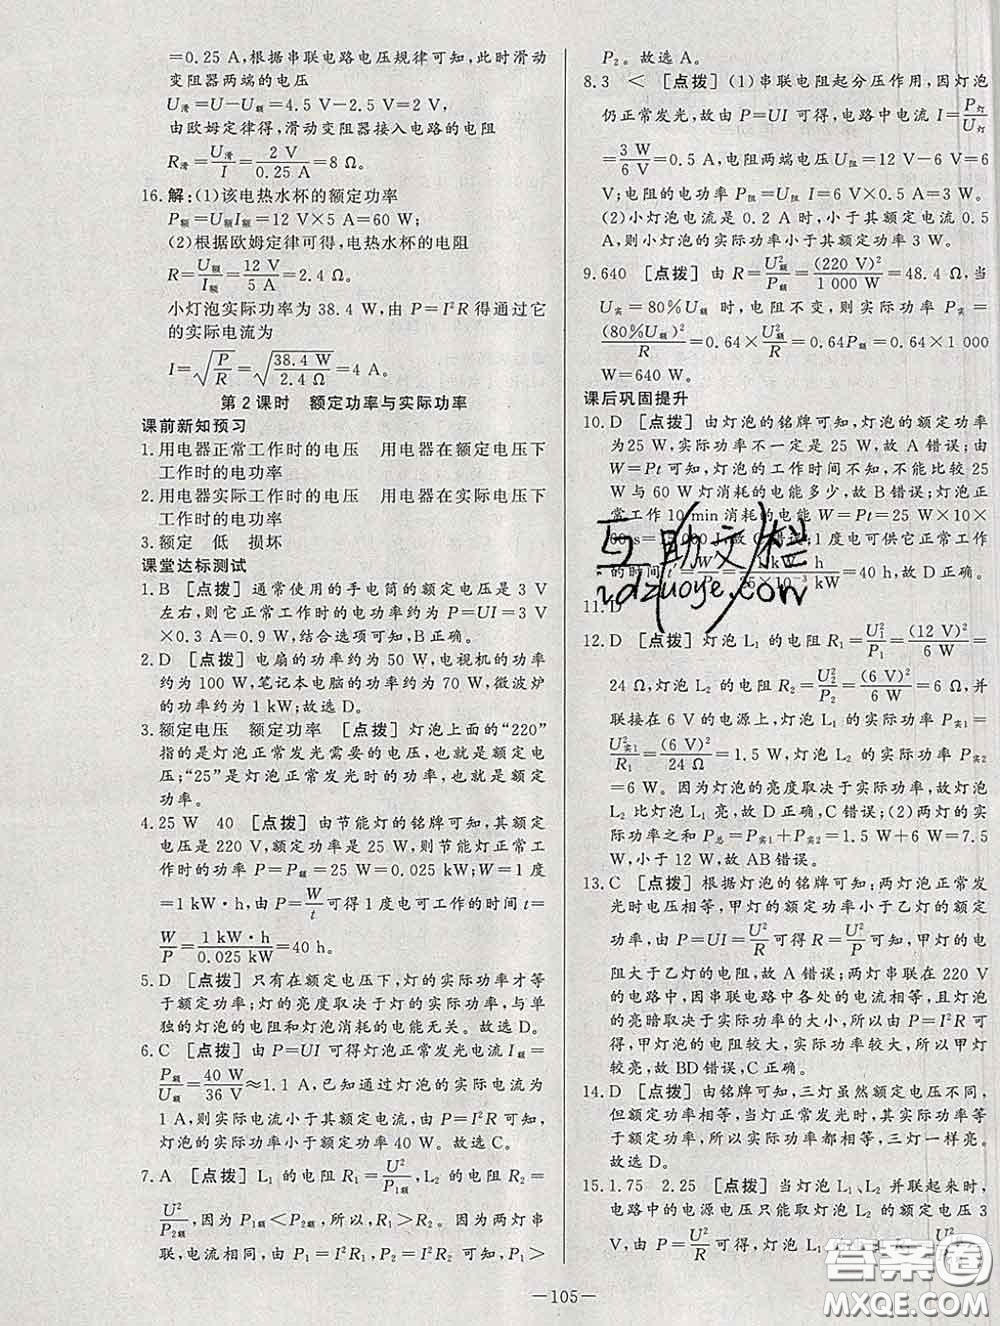 =0.25 A,根据串联电路电压规律可知,此时滑动
变阻器两端的电压
U滑=U-U额=4.5 V-2.5 V=2 V,
由欧姆定律得,滑动变阻器接入电路的电阻
R滑=U滑/I=2 V/0.25 A=8 Ω.
16.解:(1)该电热水杯的额定功率
P额=U额I额=12 V×5 A=60 W;
(2)根据欧姆定律可得,电热水杯的电阻
R=U额/I额=12 V/5 A=2.4 Ω.
小灯泡实际功率为38.4 W,由 P=I²R 得通过它
的实际电流为
I=√(P/R)=√(38.4 W/2.4 Ω)=4 A.
第2课时 额定功率与实际功率
课前新知预习
1.用电器正常工作时的电压 用电器在额定电压下
工作时的电功率
2.用电器实际工作时的电压 用电器在实际电压下
工作时的电功率
3.额定 低 损坏
课堂达标测试
1.B [点拨] 通常使用的手电筒的额定电压是3 V
左右,则它正常工作时的电功率约为P=UI=3 V
×0.3 A=0.9 W,结合选项可知,B正确。
2.D [点拨] 电扇的功率约为50 W,电视机的功率
约为100 W,笔记本电脑的功率约为70 W,微波炉
的功率约为1 kW;故选D。
3.额定电压 额定功率 [点拨] 灯泡上面的“220”
指的是灯泡正常发光需要的电压,也就是额定电
压;“25”是灯泡正常发光时的功率,也就是额定
功率。
4.25 W 40 [点拨] 由节能灯的铭牌可知,其额定
电压是220 V,额定功率是25 W,则节能灯正常工
作时的功率P=P额=25 W=0.025 kW;W=1度
=1 kW·h,由 P=W/t可得1度电可工作的时间 t=
W/P=1 kW·h/0.025 kW=40 h.
5.D [点拨] 只有在额定电压下,灯的实际功率才等
于额定功率;灯的亮度取决于灯的实际功率,与单
独的灯泡的电阻和灯泡消耗的电能无关。故选D。
6.C [点拨] 由 P=UI 可得灯泡正常发光电流I额=
P额/U额=40 W/36 V≈1.1 A,已知通过灯泡的实际电流为
1 A,则实际电流小于其额定电流,由P=I²R可知,
灯泡的实际功率小于额定功率40 W。故选C。
7.A [点拨] L₁ 的电阻 R₁=U²/P₁额,L₂ 的电阻 R₂=
U²/P₂额,因为P₁额<P₂额,所以,R₁>R₂。因为两灯串
联,电流相同,由 P₁=I²R₁,P₂=I²R₂ 可知,P₁>
P₂。故选A。
8.3 < [点拨] (1)串联电阻起分压作用,因灯泡
仍正常发光,故由 P=UI 可得,电路中电流 I=P灯/U灯
=3 W/6 V=0.5 A,电阻两端电压U阻=12 V-6 V=6
V;电阻的电功率P阻=U阻I=6 V×0.5 A=3 W.
(2)小灯泡电流是0.2 A时,小于其额定电流0.5
A,则小灯泡的实际功率小于其额定功率3 W。
9.640 [点拨] 由 R=U额²/P额=(220 V)²/1 000 W=48.4 Ω,当
U实=80%U额 时,电阻不变,则实际功率 P实=
(80%U额)²/R=0.64×U额²/R=0.64P额=0.64×1 000
W=640 W.
课后巩固提升
10.D [点拨] 由灯泡的铭牌可知,灯泡的额定功率
为25 W,实际功率不一定是25 W。故A错误;由
W=Pt可知,灯泡的工作时间不知,不能比较25
W与60 W灯消耗的电能多少,故B错误;灯泡正
常工作10 min消耗的电能W=Pt=25 W×10×
的时间t=W/P= kW·h/25×10⁻³ kW=40 h,故D正确。
11.D
12.D [点拨] 灯泡 L₁ 的电阻 R₁=U₁²/P₁=(12 V)²/6 W=
24 Ω,灯泡 L₂ 的电阻 R₂=U₂²/P₂=(6 V)²/6 W=6 Ω,并
联接在6 V的电源上,灯泡 L₁ 的实际功率 P实₁=
U实₁²/R₁=(6 V)²/24 Ω=1.5 W,灯泡 L₂ 的实际功率 P实₂
=6 W。因为灯泡的亮度取决于实际功率,故灯泡
L₂比灯泡L₁亮,故D正确,C错误;(2)两灯的实
际功率之和 P总=P实₁+P实₂=1.5 W+6 W=7.5
W,小于12 W,故AB错误。
13.C [点拨] 根据灯泡的铭牌可知;两灯泡正常发
光时电压相等,甲灯的额定功率小于乙灯的额定
功率,由P=UI=U²/R可得R=U²/P可知,甲灯的电
阻大于乙灯的电阻,故A错误;两灯串联在220 V
的电路中,因串联电路中各处的电流相等,且灯泡
的亮暗取决于实际功率的大小,所以由P=I²R可
得,甲灯泡的实际电阻较大,实际功率较大,所以甲灯
较亮,故BD错误,C正确。
14.D [点拨] 由铭牌可知,三灯虽然额定电压不同,
但额定功率相等,当灯正常发光时,其实际功率等
于额定功率,所以实际功率都相等,三灯一样亮。
故选D。
15.1.75 2.25 [点拨] 当灯泡L₁、L₂并联起来时,
电路中的电源电压只能取灯泡L₂的额定电压3
V,由 P=U²/R 可得,灯泡L₁
—105—
互助文栏
idzuoye.com
答案圈
MXQE.COM